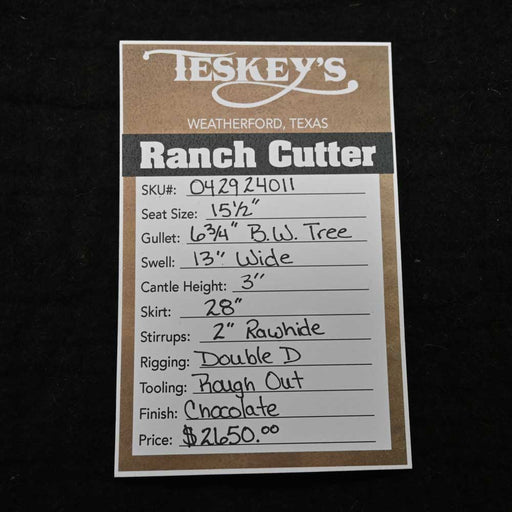 TESKEY'S
WEATHERFORD, TEXAS
Ranch Cutter
SKU#: 042924011
Seat Size: 15½"
Gullet: 6¾" B.W. Tree
Swell: 13" Wide
Cantle Height: 3"
Skirt: 28"
Stirrups: 2" Rawhide
Rigging: Double D
Tooling: Rough Out
Finish: Chocolate
Price: $2650.00